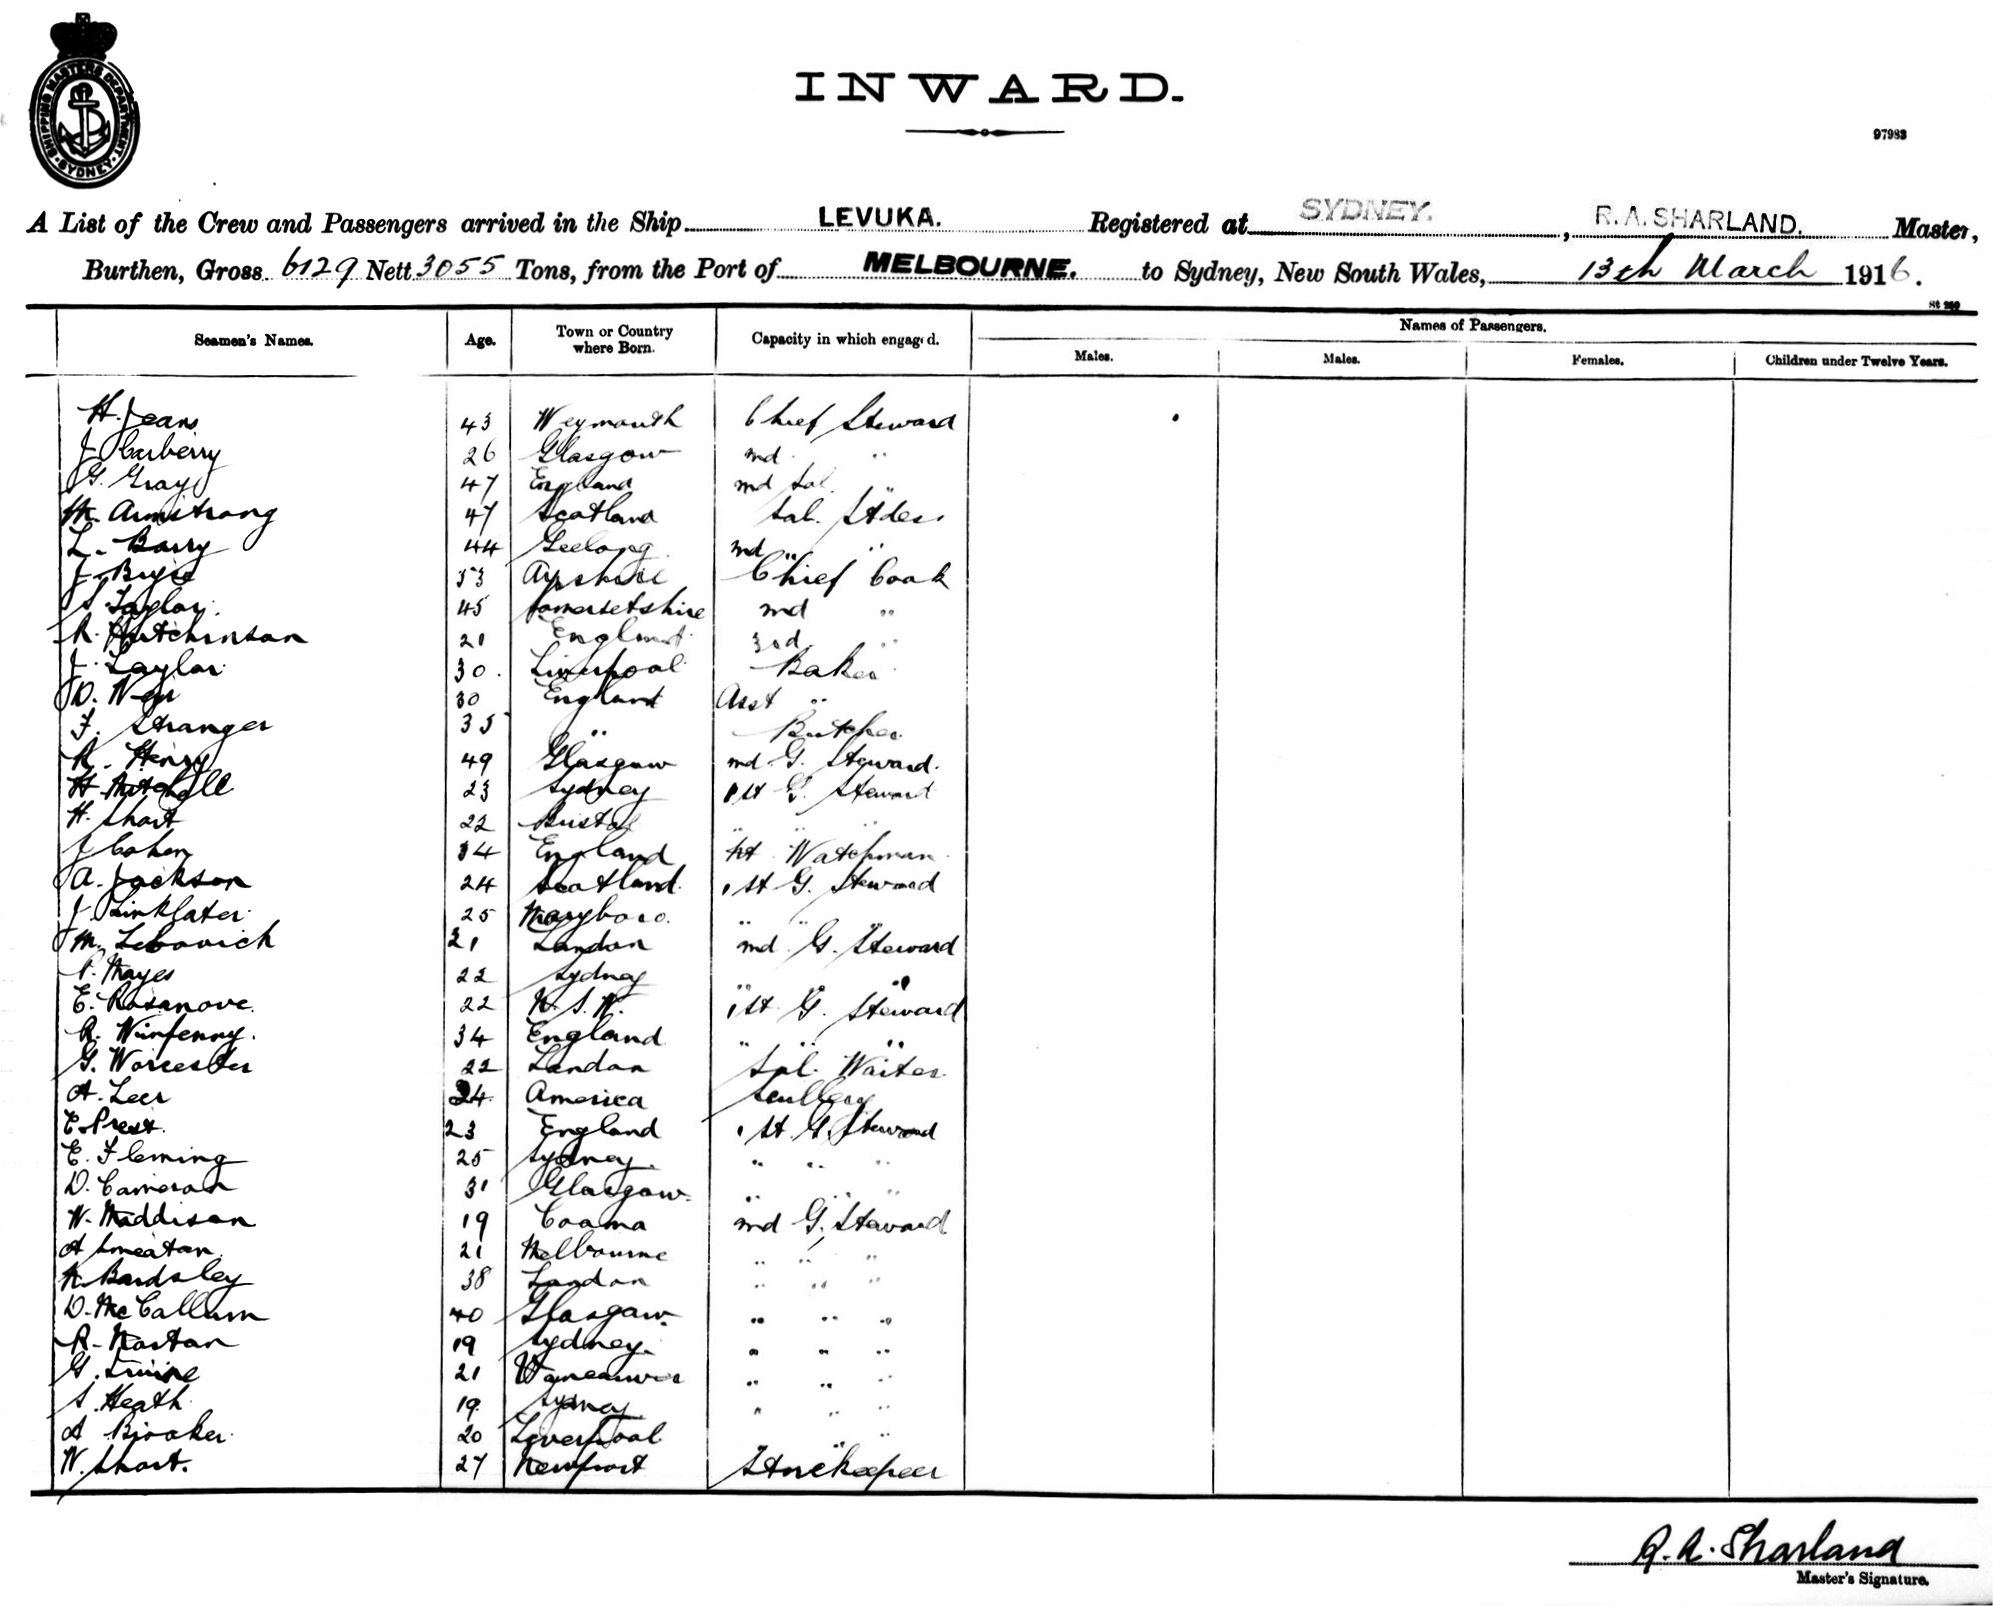 SHIPPING MASTERS DEPARTMENT. SYDNEY.
INWARD.
97983
A List of the Crew and Passengers arrived in the Ship LEVUKA. Registered at SYDNEY., R. A. SHARLAND. Master,
Burthen, Gross 6129 Nett 3055 Tons, from the Port of MELBOURNE. to Sydney, New South Wales, 13th March 1916.
St 280
Seamen's Names. Age. Town or Country where Born. Capacity in which engaged. Names of Passengers.
Males. Males. Females. Children under Twelve Years.
H. Jeans 43 Weymouth Chief Steward
J Carberry 26 Glasgow 2nd "
G. Gray 47 England 2nd Sal.
Armstrong 47 Scotland Sal. Stdess
L. Barry 44 Geelong 2nd "
J. Bryce 53 Ayrshire Chief Cook
S Taylor. 45 Somersetshire 2nd "
R. Hutchinson 21 England 3rd "
J. Taylor 30. Liverpool Baker
D. Weir 30 England Asst "
F. Stranger 35 " Butcher
R. Henry 49 Glasgow 2nd G. Steward.
H. Mitchell 23 Sydney 1st G. Steward
H. Short 22 Bristol " " "
J Cohen 34 England Nt Watchman
A. Jackson 24 Scotland. 1st G. Steward
J. Linklater 25 Maryboro. " " "
M. Lebovich 21 London 2nd G. Steward
P. Mayes 22 Sydney " " "
E. Rosanove 22 N. S. W. 1st G. Steward
R. Winpenny. 34 England " " "
G. Worcester 22 London Spl. Waiter
A. Leer 24 America Scullery
E. Prest. 23 England 1st G. Steward
E. Fleming 25 Sydney. " " "
D. Cameron 31 Glasgow. " " "
W. Maddison 19 Cooma 2nd G. Steward
A Smeaton. 21 Melbourne " " "
Bardsley 38 London " " "
D. McCallum 40 Glasgow. " " "
R. Norton 19 Sydney. " " "
G. Irvine 21 Vancouver " " "
S. Heath 19. Sydney " " "
A Brooker 20 Liverpool " " "
W. Short. 27 Newport Storekeeper
R. A. Sharland
Master's Signature.